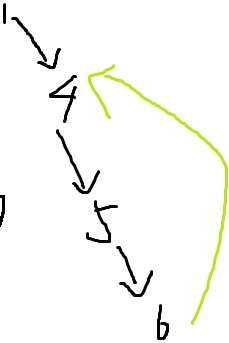 1
4
5
6